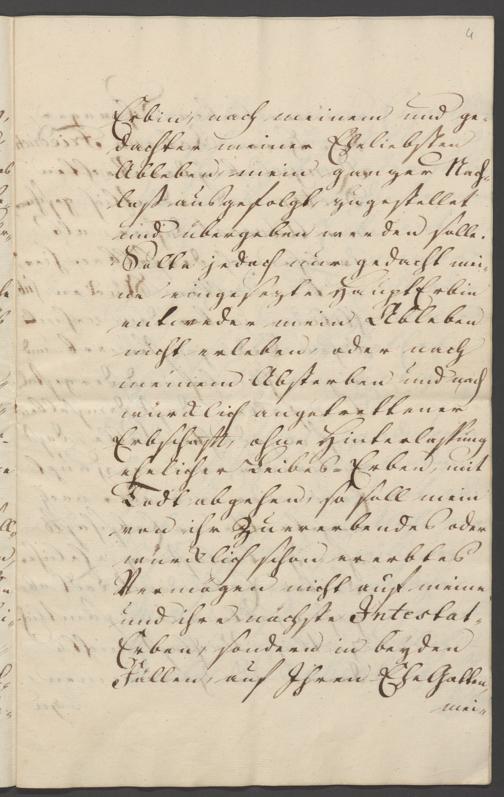 4
Erbin, nach meinem und ge-
dachter meiner Eheliebsten
Ableben, mein ganzer Nach-
laß ausgefolgt, zugestellet
und übergeben werden solle.
Solte jedoch nurgedacht mei-
ne eingesezte HauptErbin
entweder mein Ableben
nicht erleben, oder nach
meinem Absterben und nach
würcklich angetrettener
Erbschafft, ohne Hinterlassung
ehelicher Leibes-Erben, mit
Todt abgehen, so soll mein
von ihr Zuererbendes oder
würcklich schon ererbtes
Vermögen nicht auf meine
und ihre nächste Intestat-
Erben, sondern in beyden
Fällen, auf Ihren EheGatten,
mei-